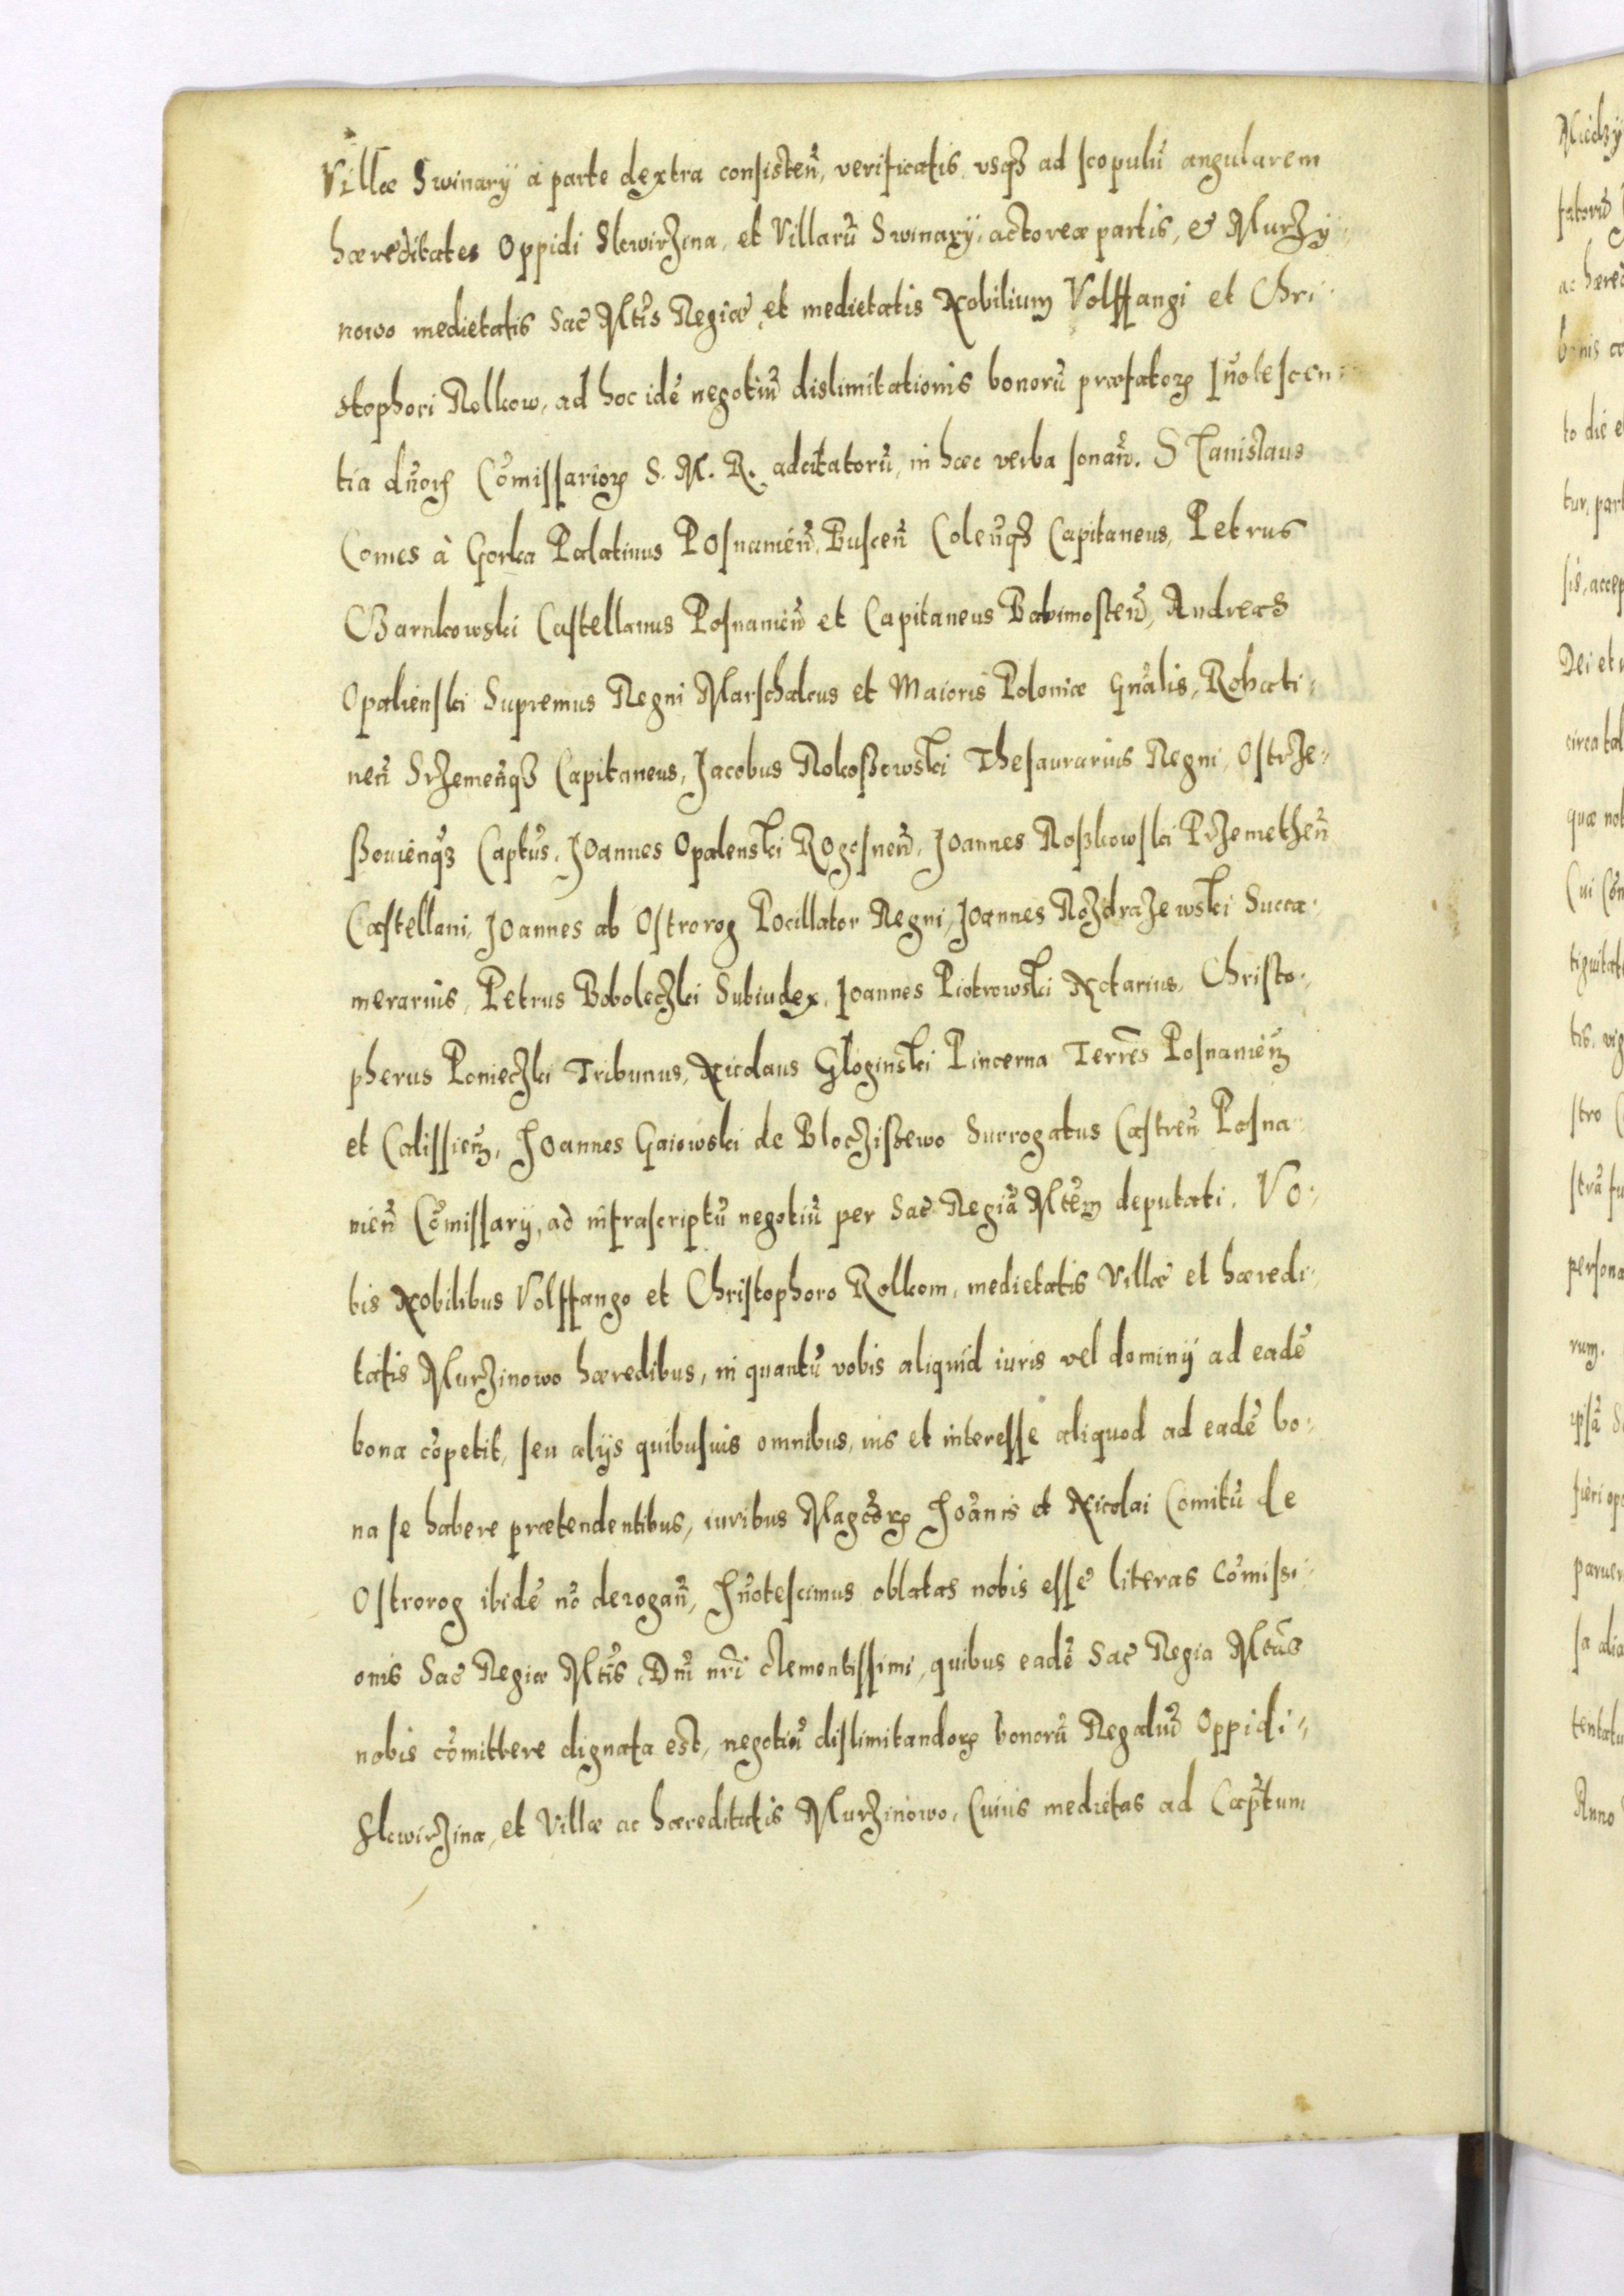 Villæ Swinarÿ à parte dextra consisteñ, verificatis, vsqȝ ad scopulũ angularem
hæreditates Oppidi Skwirzina, et Villarũ Swinarÿ, actoreæ partis, & Murzÿ
nowo medietatis Sac̃ Mt̃is Regiæ, et medietatis Nobilium Volffangi et Chri
stophori Rolkow, ad hoc idẽ negotiũ dislimitationis bonorũ præfatorꝝ Iñotescen
tia dñorꝝ Cõmissariorꝝ S. M. R. adcitatorũ, in hæc verba sonañ. Stanislaus
Comes à Gorka Palatinus Posnanieñ, Busceñ Coleñqȝ Capitaneus, Petrus
Czarnkowski Castellanus Posnanieñ et Capitaneus Babimosteñ, Andreas
Opalienski Supremus Regni Marschalcus et Maioris Poloniæ Gñalis, Rohati
neñ Srzemeñqȝ Capitaneus, Jacobus Rokoßowski Thesaurarius Regni, Ostrze
ßouieñqȝ Captũs, Joannes Opalenski Rogosneñ, Joannes Roßkowski Przemetheñ
Castellani, Joannes ab Ostrorog Pocillator Regni, Joannes Rozdrazewski Succa
merarius, Petrus Boboleczki Subiudex, Joannes Piotrowski Notarius, Christo
pherus Ponieczki Tribunus, Nicolaus Gloginski Pincerna Terrẽs Posnanieñ
et Calissieñ, Joannes Gaiowski de Bloczißewo Surrogatus Castreñ Posna
nieñ Cõmissarÿ, ad infrascriptũ negotiũ per Sac̃ Regiã Mt̃em deputati. Vo
bis Nobilibus Volffango et Christophoro Rolkom, medietatis Villæ et hæredi
tatis Murzinowo hæredibus, in quantũ vobis aliquid iuris vel dominÿ ad eadẽ
bona cõpetit, seu alÿs quibusuis omnibus, ius et interesse aliquod ad eadẽ bo
na se habere prætendentibus, iuribus Magcorꝝ Joãnis et Nicolai Comitũ de
Ostrorog ibidẽ nõ derogañ, Iñotescimus oblatas nobis esse literas Cõmissi
onis Sac̃ Regiæ Mt̃is, Dñi nr̃i clementissimi, quibus eadẽ Sac̃ Regia Mt̃as
nobis cõmittere dignata est, negotiũ dislimitandorꝝ bonorũ Regaliũ Oppidi
Skwirzina, et Villæ ac hæreditatis Murzinowo, Cuius medietas ad Cap̃tum